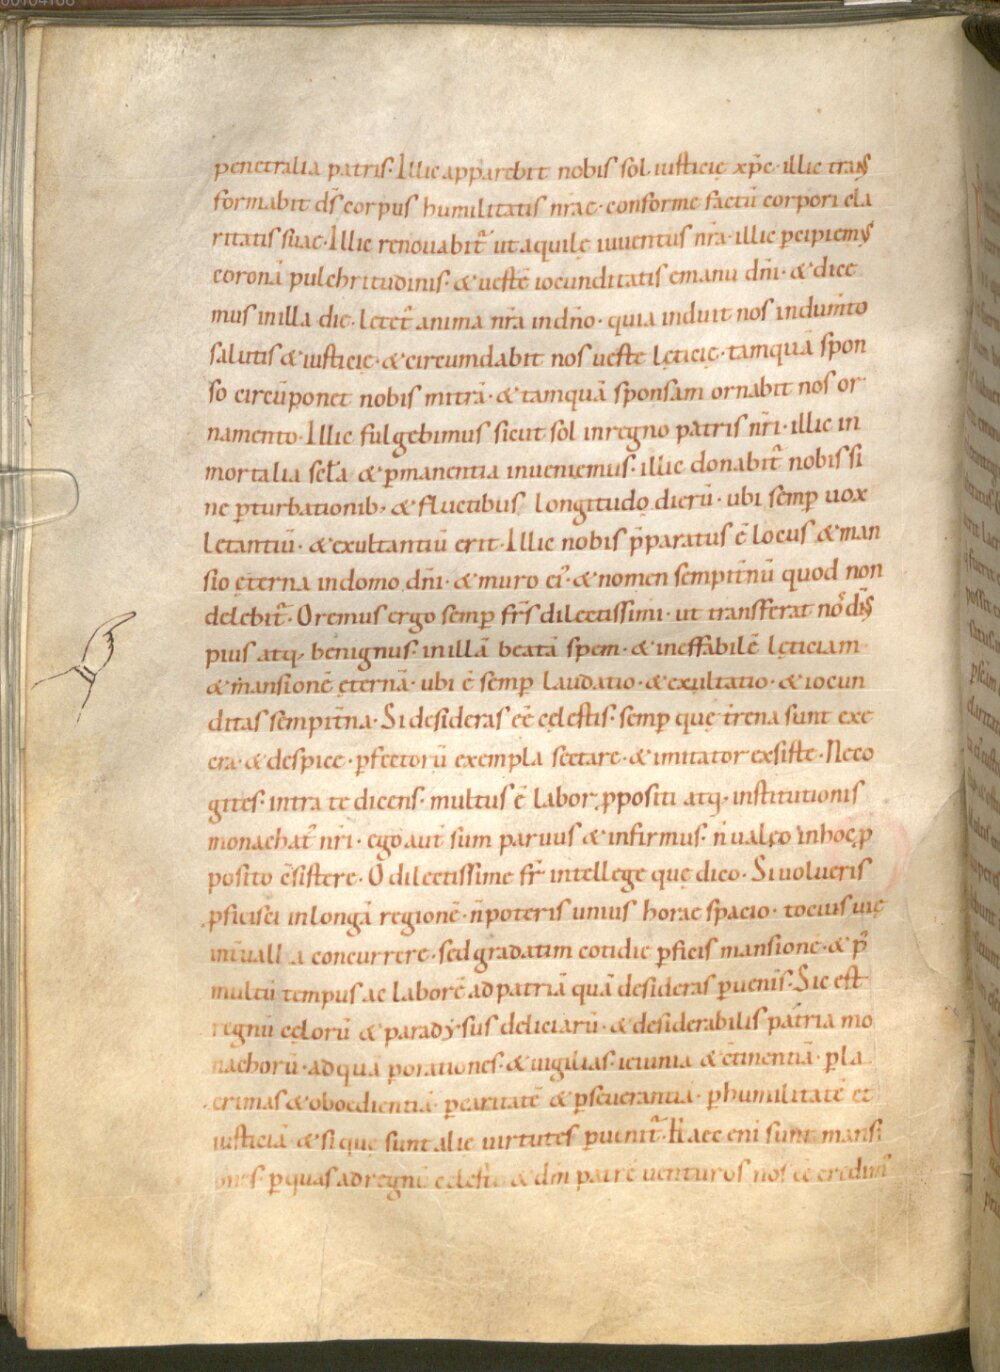 penetralia patris· Illic apparebit nobis sol iusticię xp̄c· illic trans
formabit ds̄ corpus humilitatis nr̄ae· conforme factū corpori cla
ritatis suae· Illic renouabit᷒ ut aquilę iuuentus nr̄a· illic pcipiemus
coronā pulchritudinis· & uestē iocunditatis emanu dn̄i· & dice
mus inilla die· Letet᷒ anima nr̄a indn̄o· quia induit nos indumto
salutis & iusticię· & circumdabit nos ueste lęticię· tamquā spon
so circūponet nobis mitrā· & tamquā sponsam ornabit nos or
namento· Illic fulgebimus sicut sol inregno patris nr̄i· illic in
mortalia scl̄a & p̱manentia inueniemus· illic donabit᷒ nobis si
ne p̱turbationib; & fluctibus longitudo dierū· ubi semp̱ uox
letantiū· & exultantiū erit· Illic nobis p̄paratus ē locus & man
sio ęterna indomo dn̄i· & muro ei᷒· & nomen sempit̄nū quod non
delebit᷒· Oremus ergo semp̱ fr̄s dilectissimi· ut transferat nos ds̄
pius atq; benignus· inillā beatā spem· & ineffabilē lęticiam·
& mansionē ęternā· ubi ē semp̱ laudatio· & exultatio· & iocun
ditas sempit̄na· Si desideras eē cęlestis· semp̱ quę t̄rena sunt exe
cra· & despice· p̱fectorū exempla sectare· & imitator exsiste· Ne co
gites· intra te dicens· multus ē labor p̱positi atq; institutionis
monachat᷒ nr̄i· ego aut̄ sum paruus & infirmus· n̄ ualeo inhoc p̱
posito c̄sistere· O dilectissime fr̄ intellege quę dico· Si uolueris
p̱ficisci inlongā regionē· n̄ poteris unius horae spacio· tocius uię
int̄ualla concurrere· sed gradatim cotidie p̱ficis mansione· & p᷒
multū tempus ac laborē ad patriā quā desideras p̱uenis· Sic est
regnū cęlorū & paradysus deliciarū· & desiderabilis patria mo
nachorū· ad quā p̱orationes· & uigilias· ieiunia & c̄tinentiā· p̱la
crimas & oboedientiā· p̱caritatē & p̱seuerantiā· p̱humilitatē et
iusticiā & si quę sunt alię uirtutes p̱uenit᷒· Haec eni sunt mansi
ones· p̱quas ad regnū cęleste & dm̄ patrē venturos nos eē credim᷒